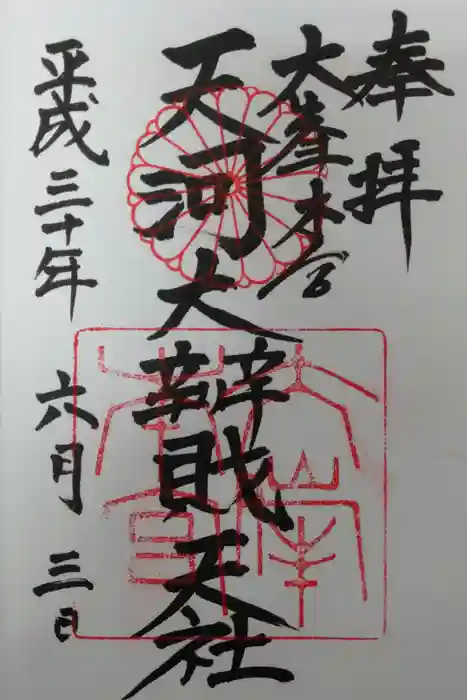 奉拝
大峯本宮
天河大辯財天社
平成三十年 六月 三日